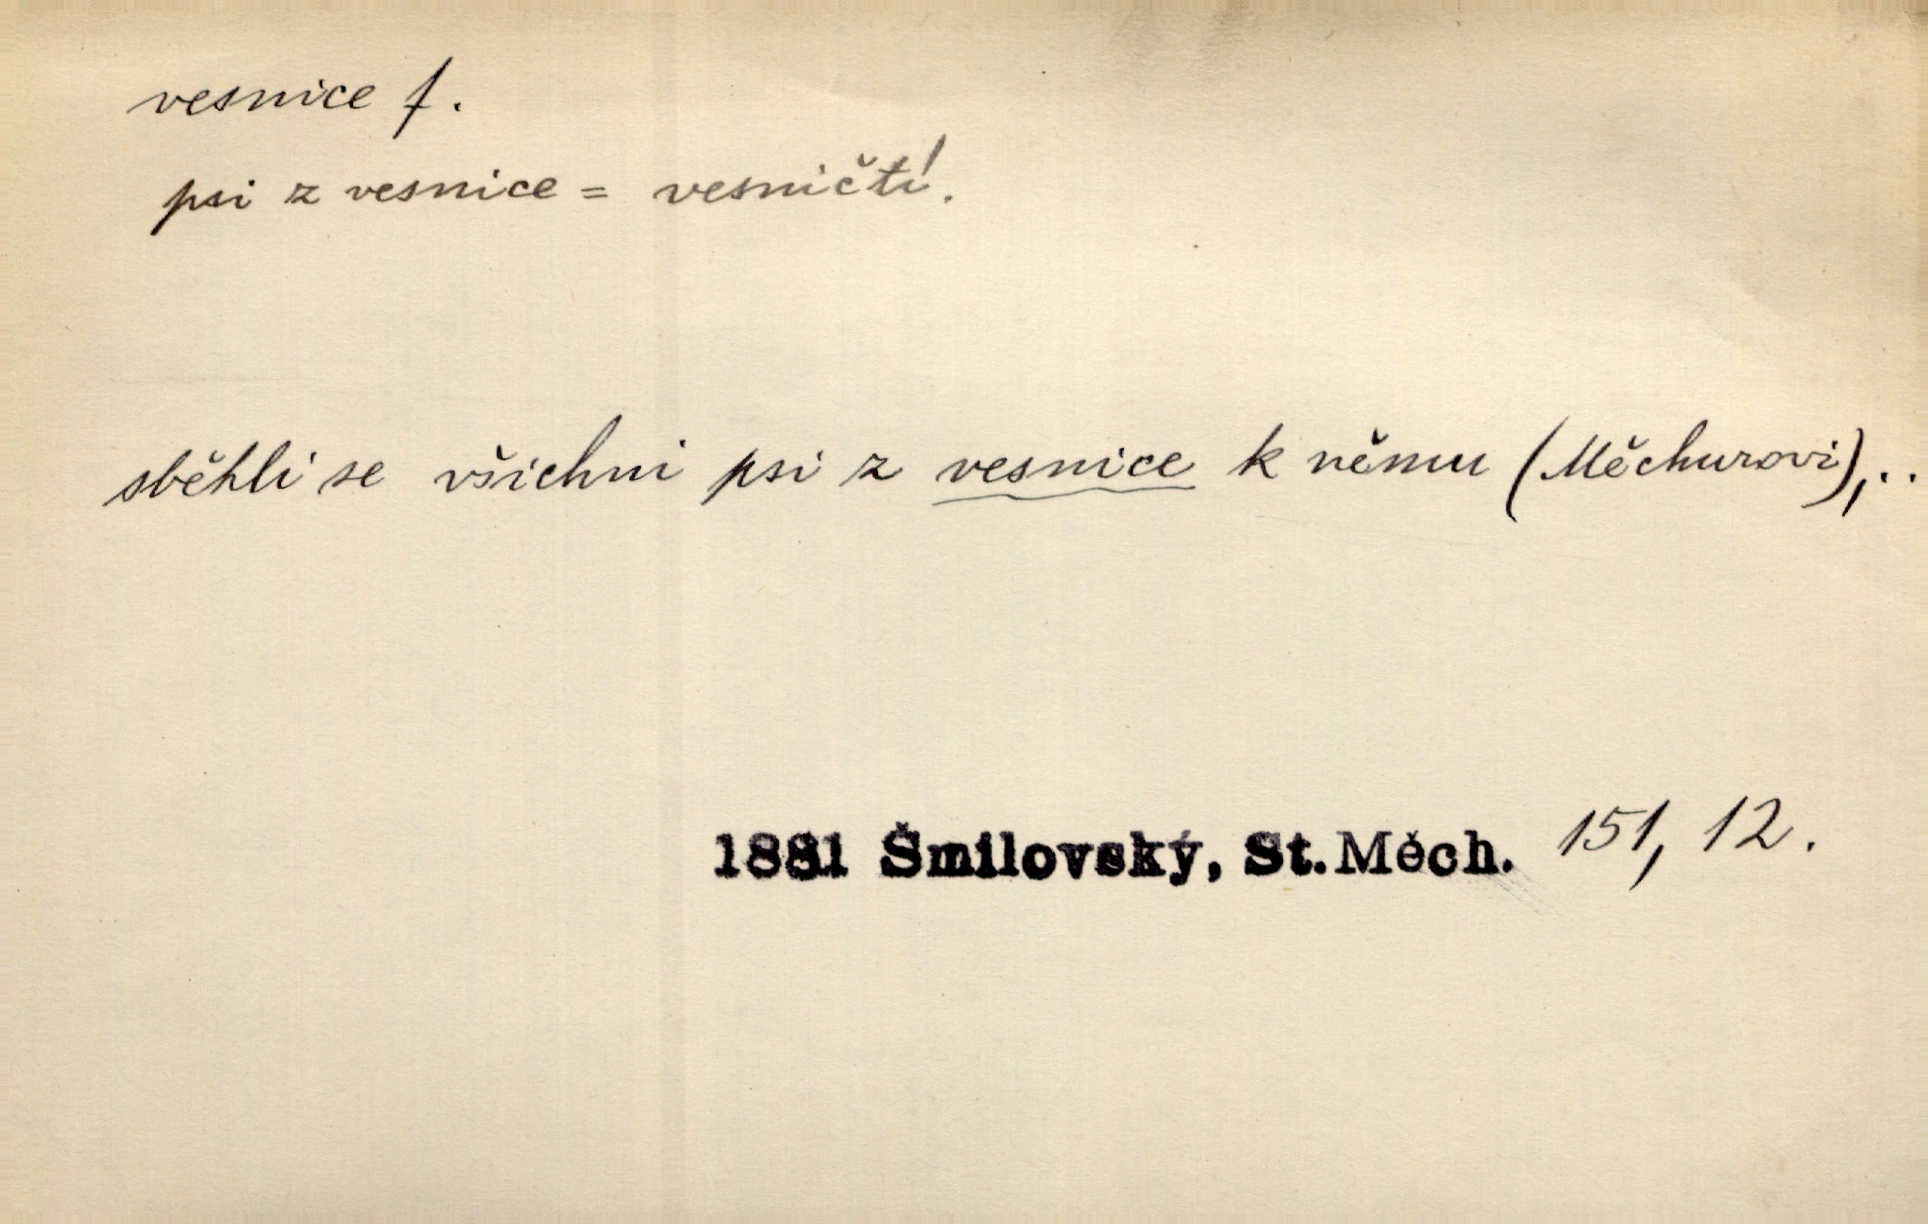 vesnice f.
psi z vesnice = vesničtí.
sběhli se všichni psi z vesnice k němu (Měchurovi),..
1881 Šmilovský, St. Měch. 151, 12.